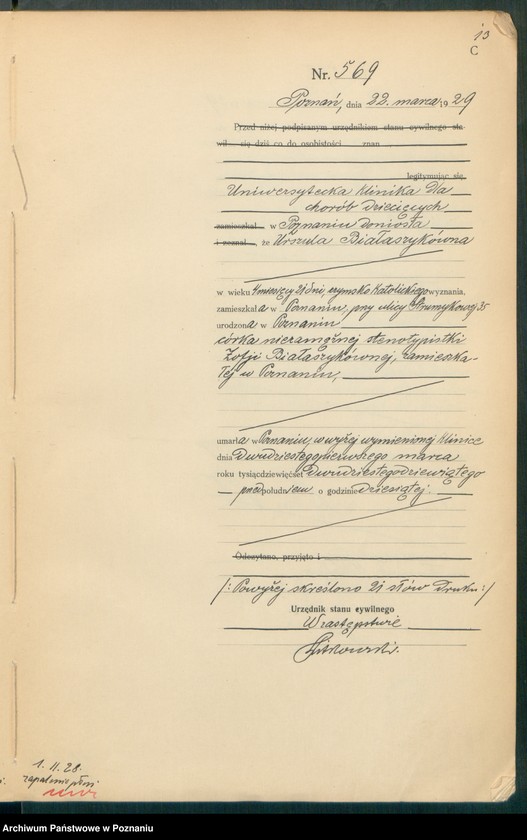 13
C
Nr. 569
Poznań, dnia 22. marca 1929
Przed niżej podpisanym urzędnikiem stanu cywilnego sta-
wił się dziś co do osobistości znan
legitymując się
Uniwersytecka Klinika dla
chorób dziecięcych
zamieszkał w Poznaniu doniosła
i zeznał, że Urszula Białaszykówna
w wieku 4 miesięcy 21 dni, rzymsko Katolickiego wyznania,
zamieszkała w Poznaniu, przy ulicy Strumykowej 35
urodzona w Poznaniu
córka niezamężnej stenotypistki
Zofji Białaszykównej, zamieszka-
łej w Poznaniu,
umarła w Poznaniu, w wyżej wymienionej Klinice
dnia Dwudziestegopierwszego marca
roku tysiącdziewięćset Dwudziestegodziewiątego
przedpołudniem o godzinie Dziesiątej.
Odczytano, przyjęto i
/: Powyżej skreślono 21 słów Druku :/
Urzędnik stanu cywilnego
W zastępstwie
1. 11. 28.
zapalenie płuc
Archiwum Państwowe w Poznaniu